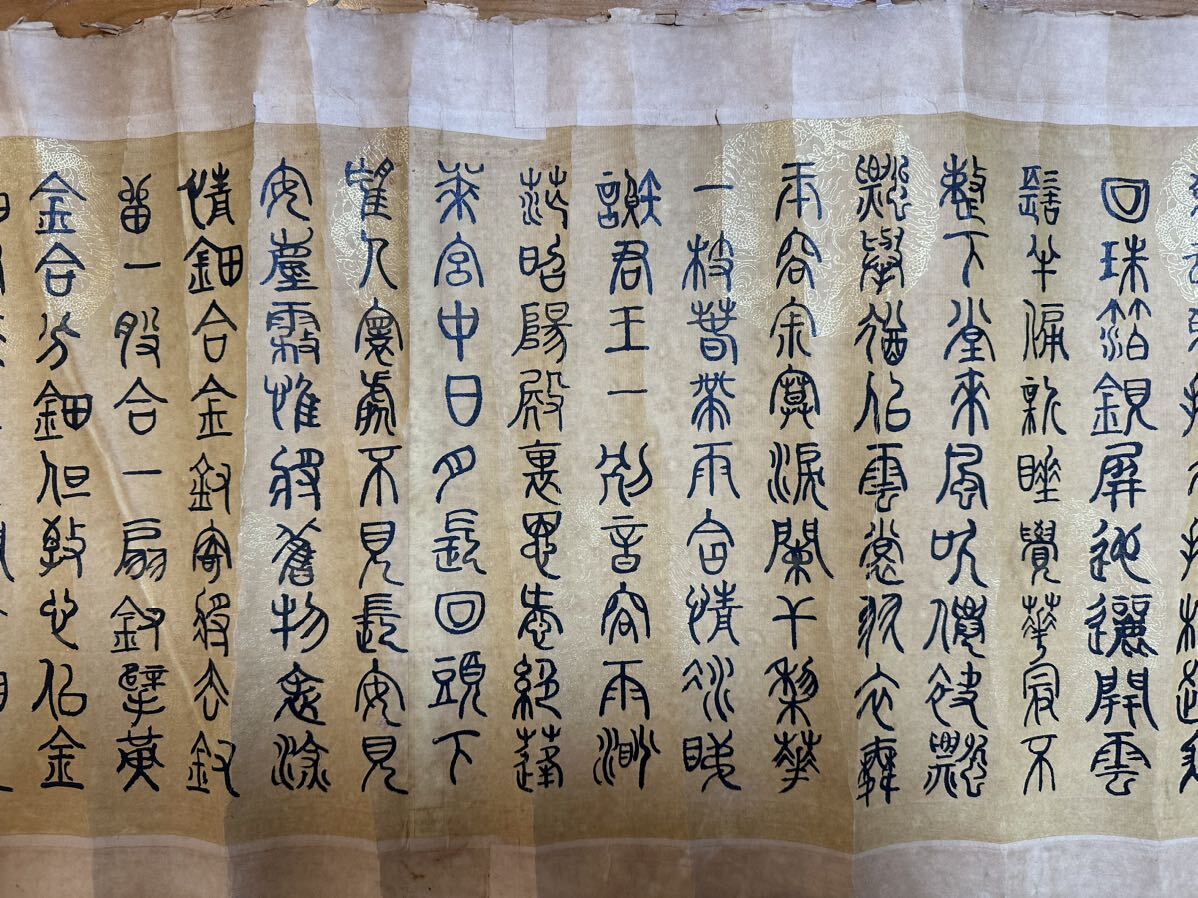 回珠箔銀屏迤邐開雲
髻半偏新睡覺華冠不
整下堂來風吹僊袂飄
飄舉猶似霓裳羽衣舞
玉容寂寞淚闌干梨華
一枝萅帶雨含情冰睇
謝君王一別音容兩渺
茫昭陽殿裏恩愛絕蓬
萊宮中日月長回頭下
望人寰處不見長安見
安塵霧惟將舊物表深
情鈿合金釵寄將去釵
留一股合一扇釵擘黃
金合分鈿但教心似金